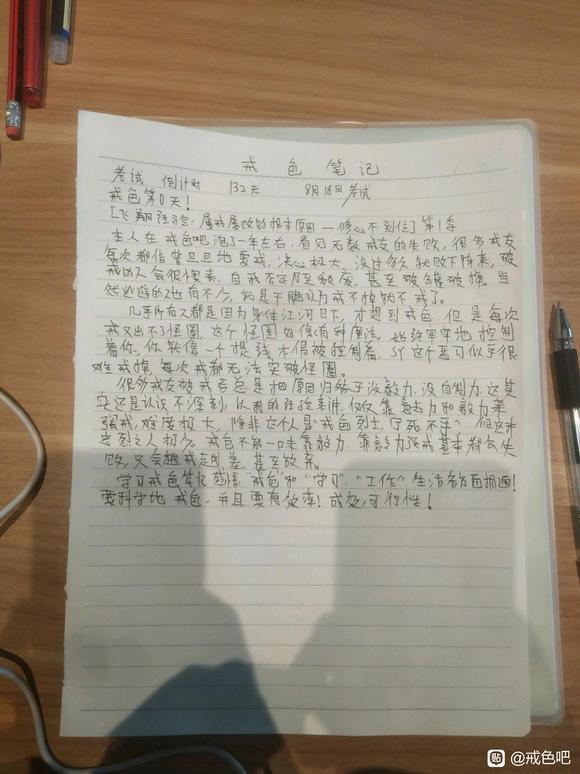 戒色笔记
考试 倒计时 132天 8月18日考试
戒色第0天!
[飞翔经验:屡戒屡败的根本原因—修心不到位]第1季
本人在戒色吧泡了一年左右,看见无数戒友的失败,很多戒友
每次都信誓旦旦地要戒,决心极大,没过多久就败下阵来,破
戒的人会很懊丧,自我否定乃至颓废,甚至破罐破摔,当
然逃避的也有不少,就是干脆认为戒不掉就不戒了。
几乎所有人都是因为身体江河日下,才想到戒色,但是每次
戒又出不了怪圈,这个怪圈好像有种魔法,始终牢牢地控制
着你,你就像一个提线木偶被控制着,这个恶习似乎很
难戒掉,每次戒都无法突破怪圈。
很多戒友破戒后总是把原因归结于没毅力,没自制力,这其
实还是认识不深刻,以我的经验来讲,仅仅靠意志力和毅力来
强戒,难度极大,除非这个人是"戒色烈士,宁死不手"但这种
定到之人极少,戒色不能一味靠毅力,靠毅力强戒基本都会失
败,只会越戒越差,甚至放弃。
学习戒色笔记 感悟 "戒色"和"学习","工作"生活各方面相通!
要科学地 戒色,并且要有效率!成效,可行性!
贴 @戒色吧